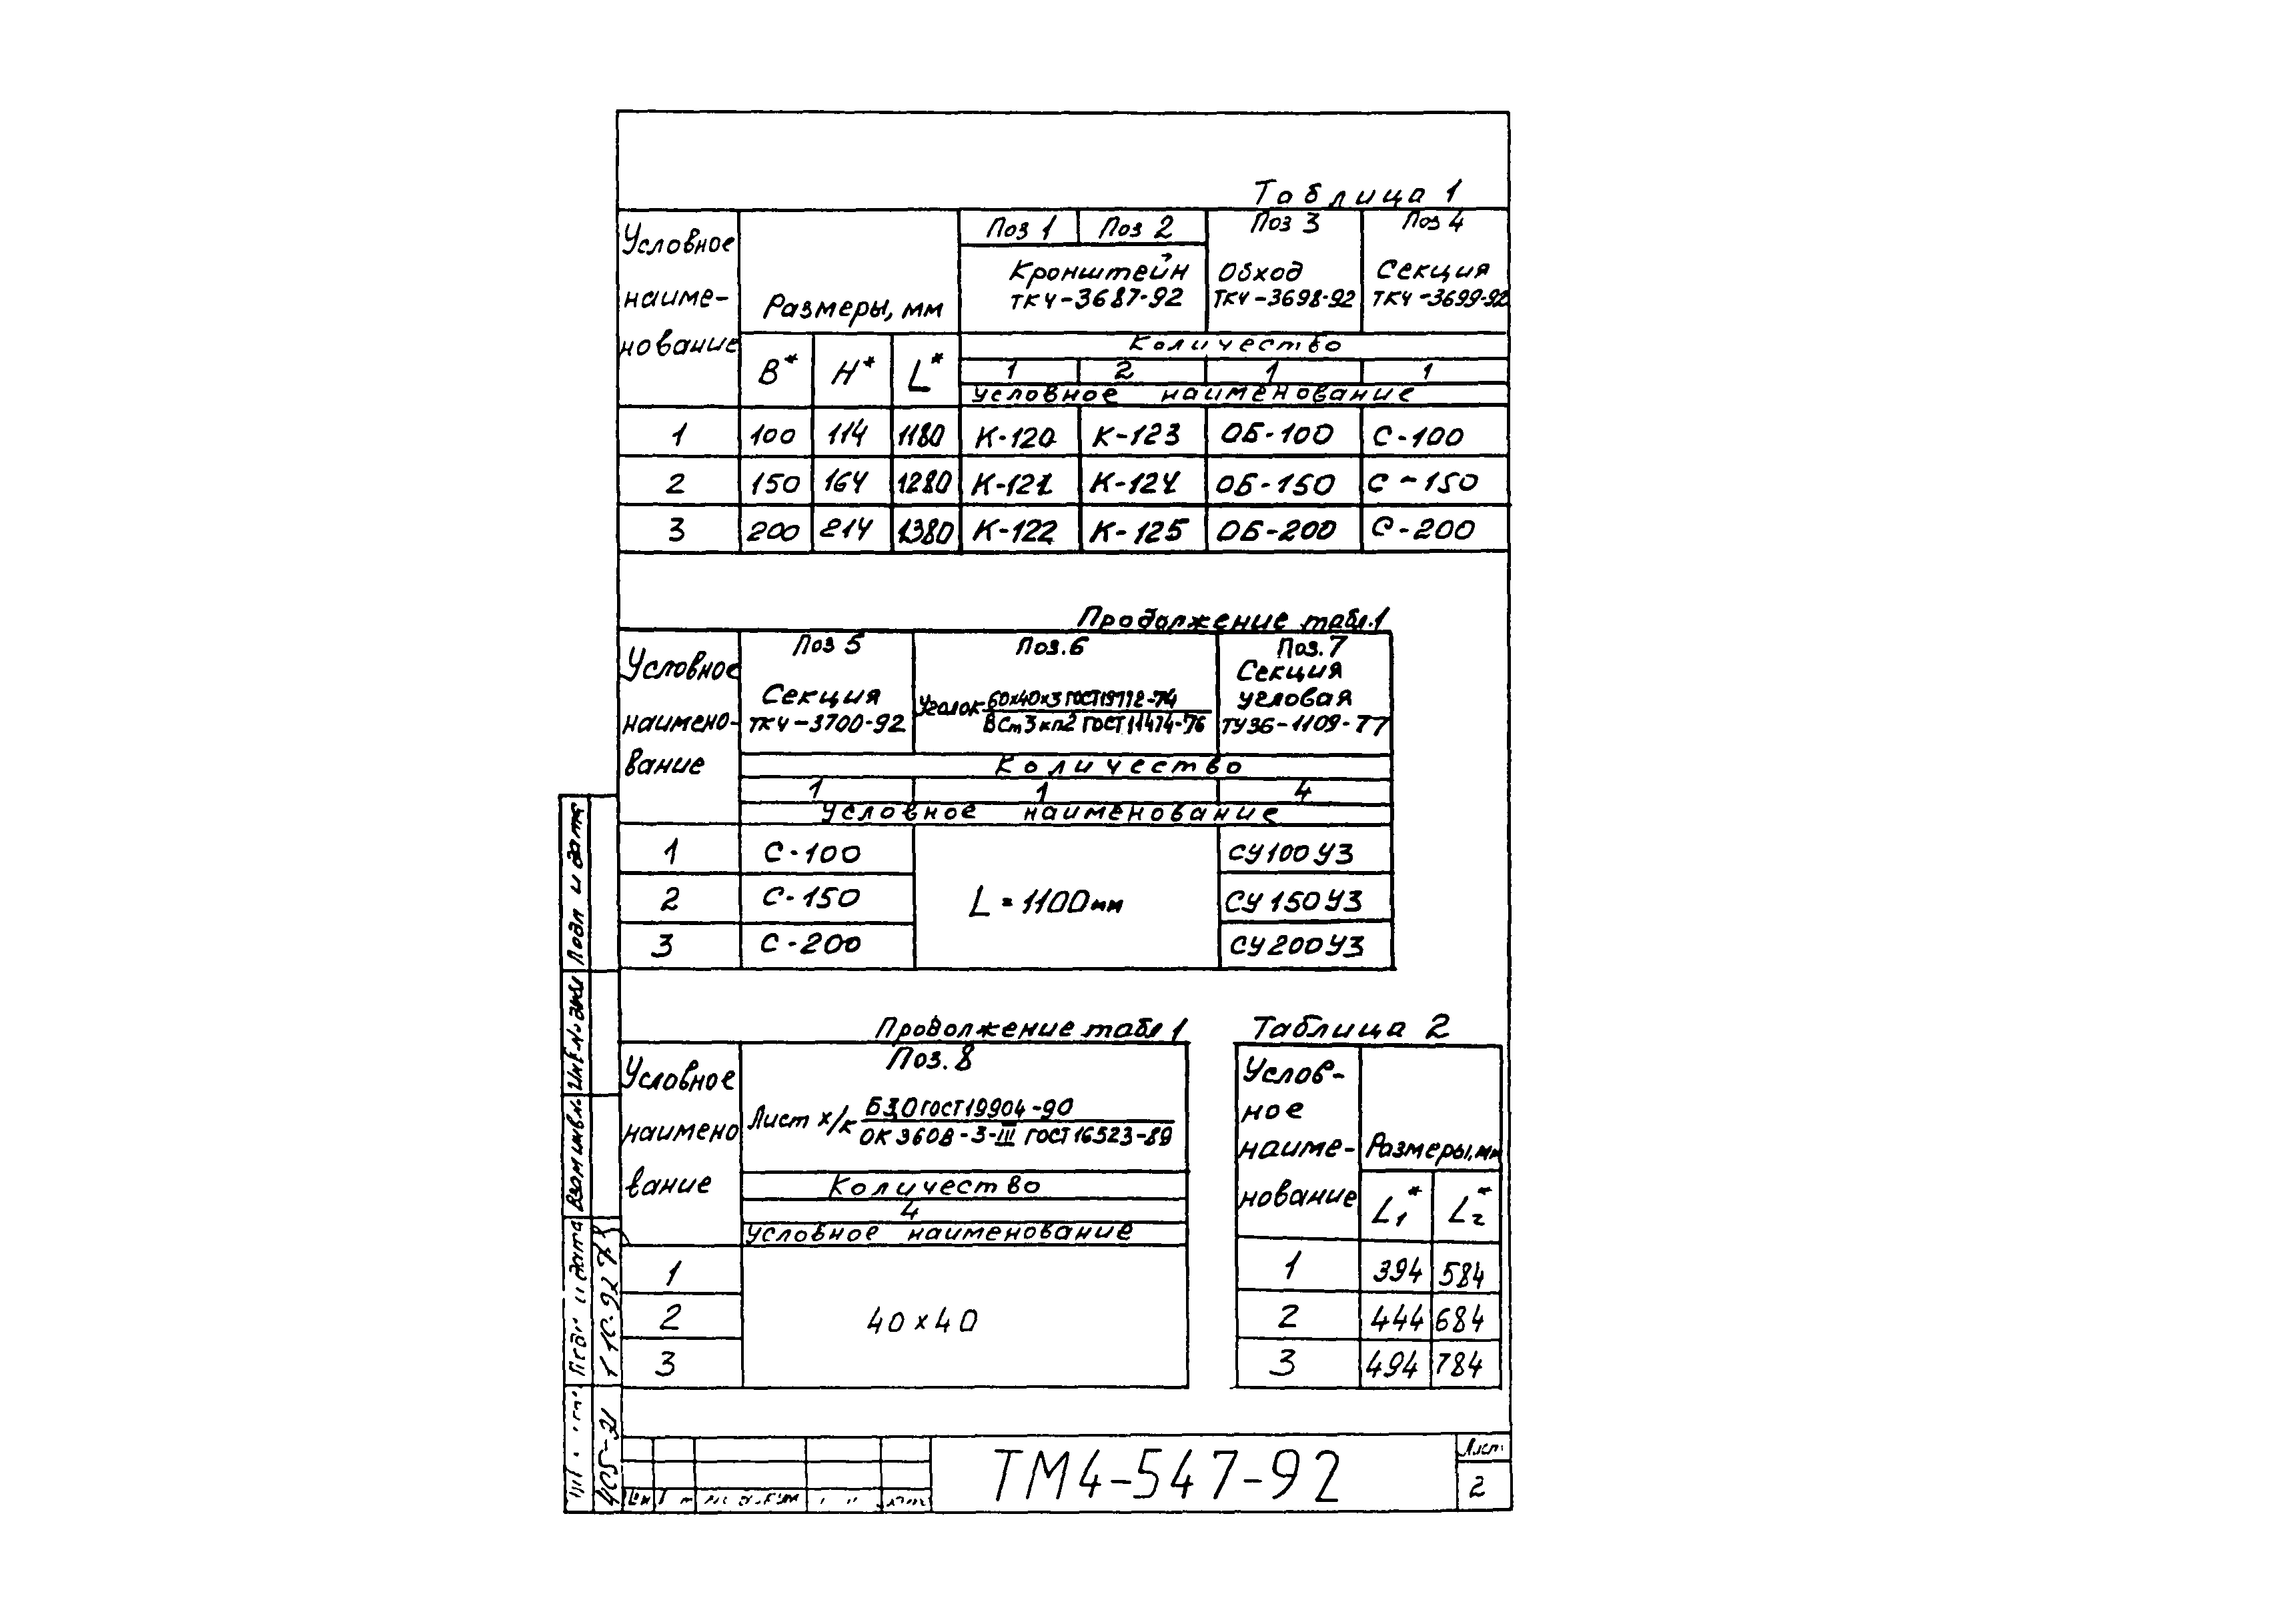 Таблица 1
Условное наиме-нование
Размеры, мм
Поз 1 Поз 2 Поз 3 Поз 4
Кронштейн Обход Секция
ТК4-3687-92 ТК4-3698-92 ТК4-3699-92
Количество
В* Н* L* 1 2 1 1
Условное наименование
1 100 114 1180 К-120 К-123 ОБ-100 С-100
2 150 164 1280 К-121 К-124 ОБ-150 С-150
3 200 214 1380 К-122 К-125 ОБ-200 С-200
Продолжение табл.1
Условное наимено-вание
Поз 5 Поз.6 Поз.7
Секция
ТК4-3700-92
Уголок 60х40х3 ГОСТ19772-74
ВСт3кп2 ГОСТ11474-76
Секция
угловая
ТУ36-1109-77
Количество
1 1 4
Условное наименование
1 С-100 СУ100У3
2 С-150 L = 1100мм СУ150У3
3 С-200 СУ200У3
Продолжение табл 1
Условное наимено вание
Поз.8
Лист х/к Б3,0 ГОСТ19904-90
ОК 360В-3-III ГОСТ 16523-89
Количество
4
Условное наименование
1
2 40х40
3
Таблица 2
Услов-
ное
наиме-
нование
Размеры, мм
L₁* L₂*
1 394 584
2 444 684
3 494 784
Подл и дата
Взам инв №
дата
ТМ4-547-92
Лист
2